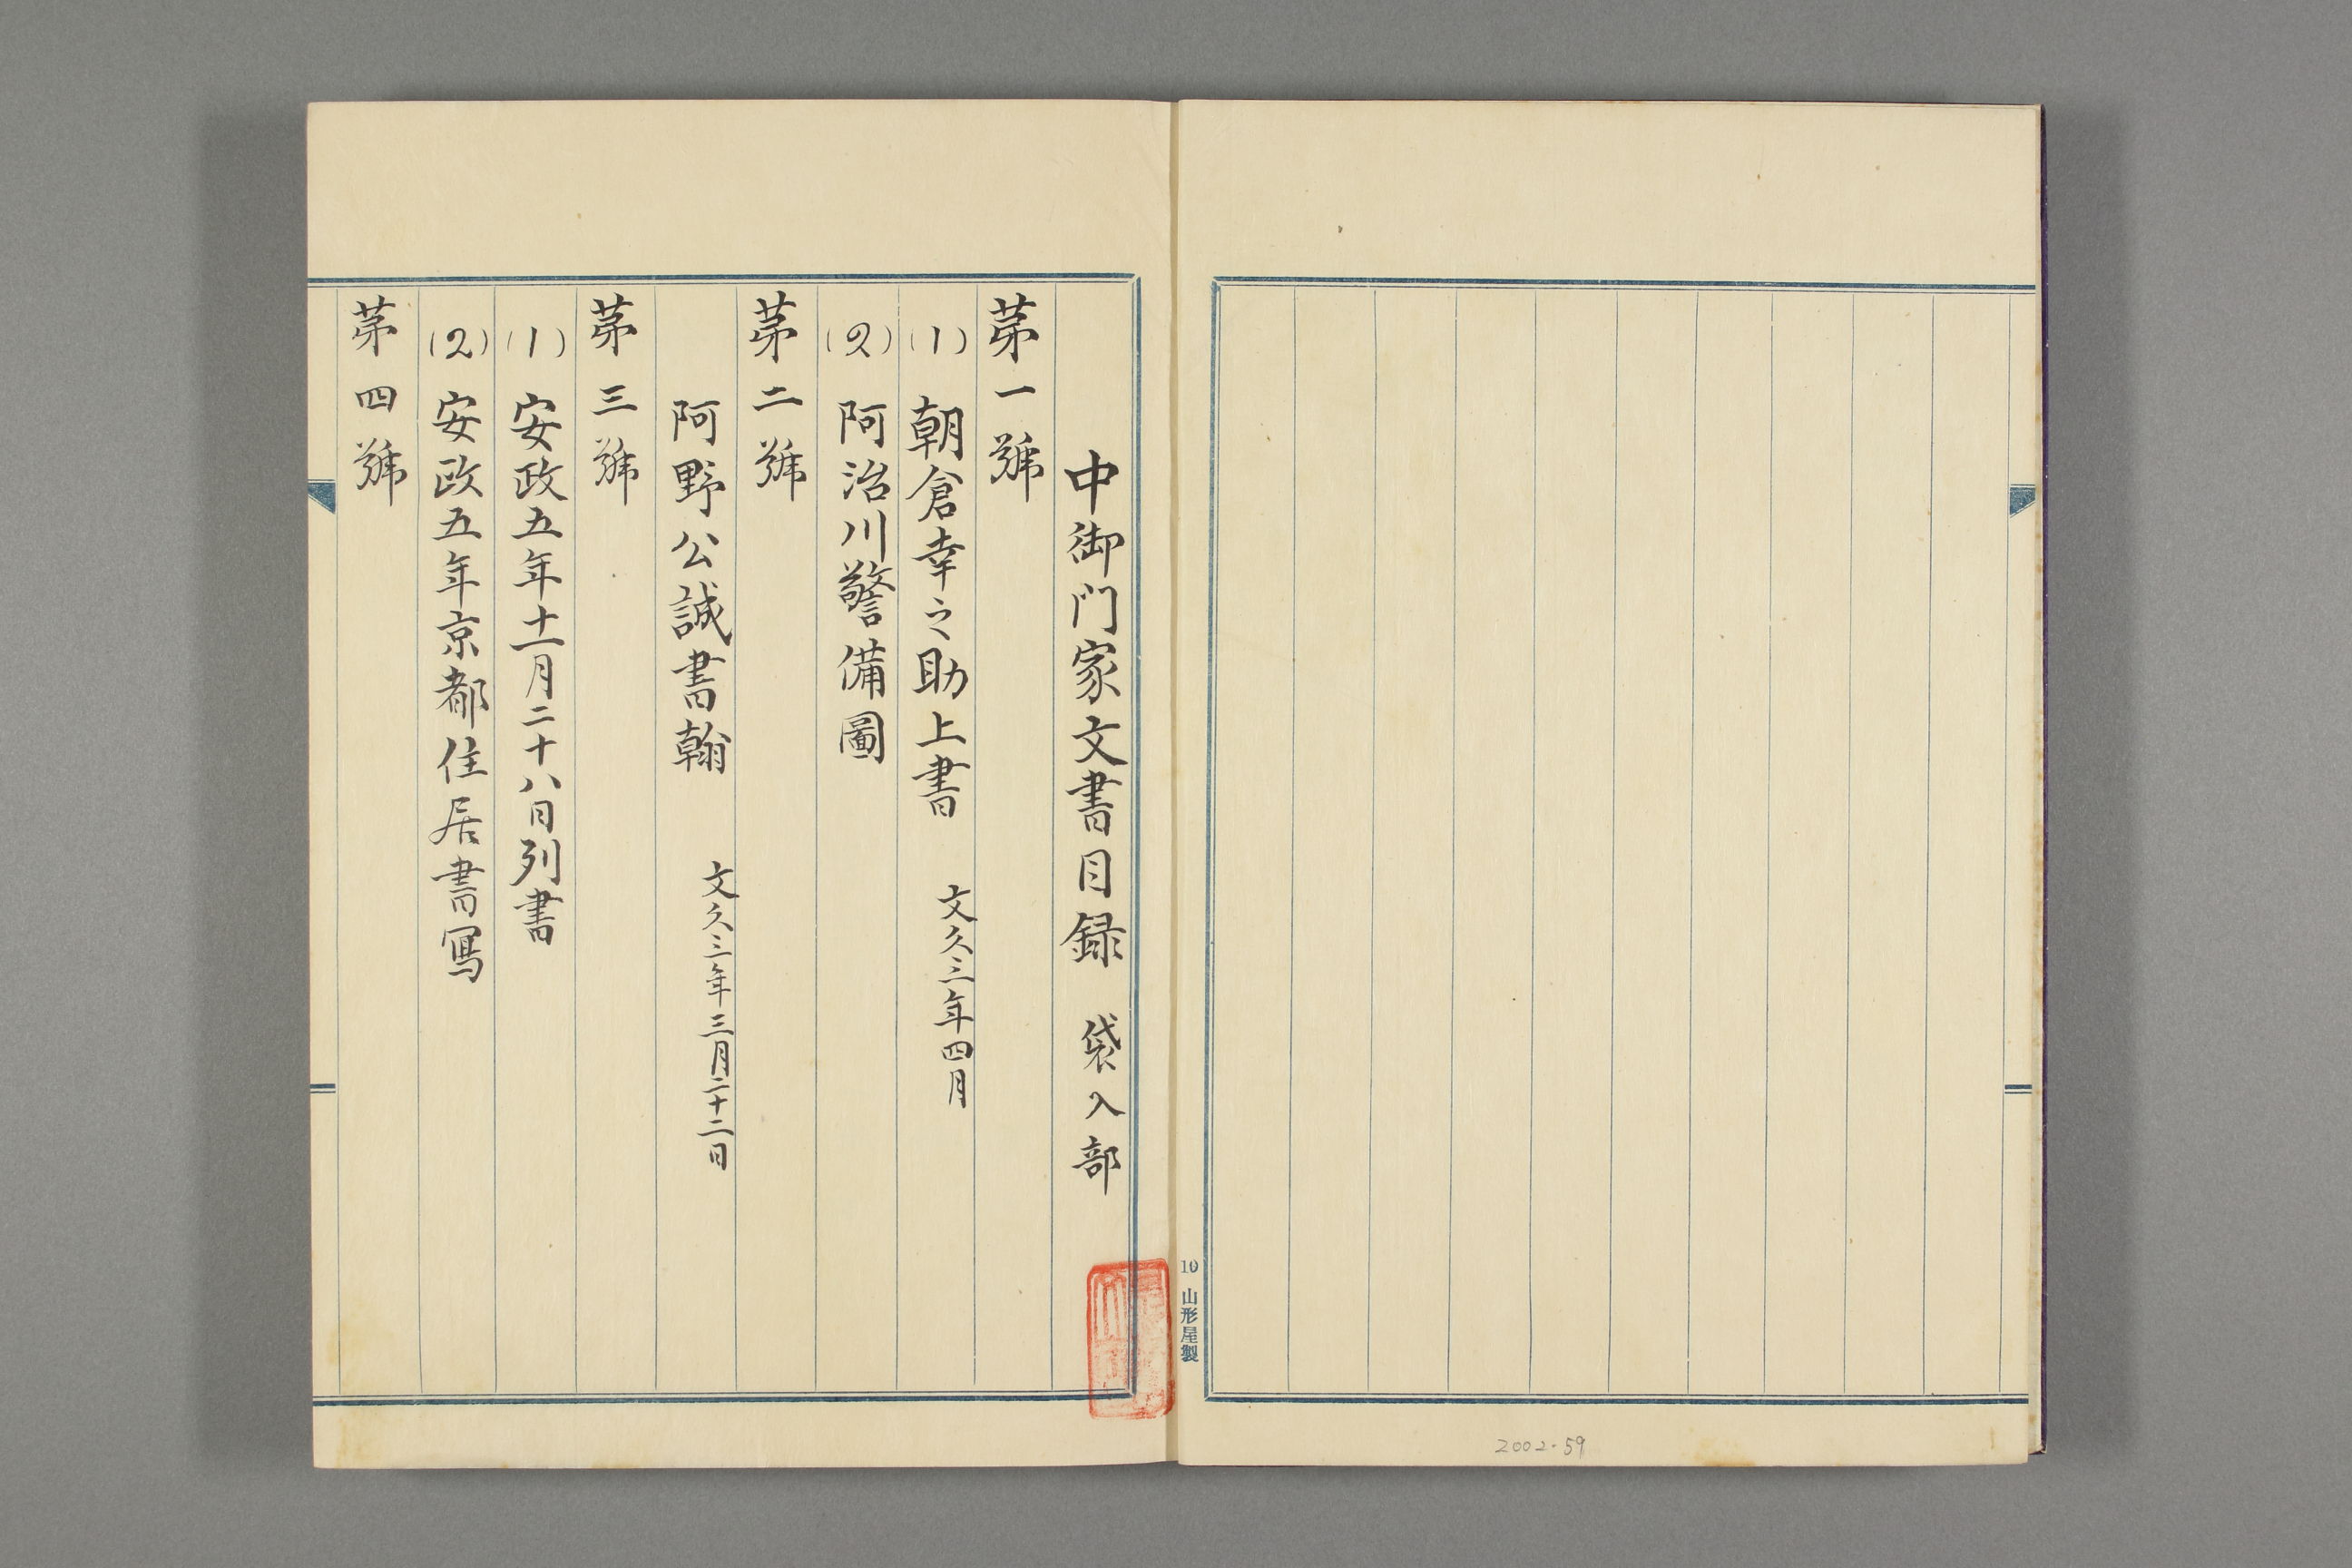 中御門家文書目録　袋入部
第一號
(1)　朝倉幸之助上書　文久三年四月
(2)　阿治川警備圖
第二號
阿野公誠書翰　文久三年三月二十二日
第三號
(1)　安政五年十一月二十八日列書
(2)　安政五年京都住居書寫
第四號
10 山形屋製
2002-59